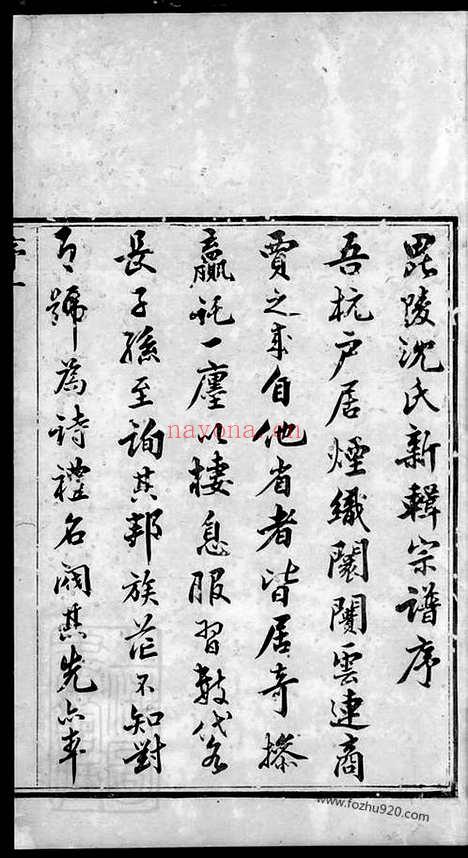 毘陵沈氏新輯宗譜序
吾杭户居煙織闤闠雲連商
賈之來自他省者皆居奇操
贏託一廛以棲息服習數代各
長子孫至詢其邦族茫不知對
號為詩禮名閥其先亦率
序一
nayona.cn
www.fozhu920.com